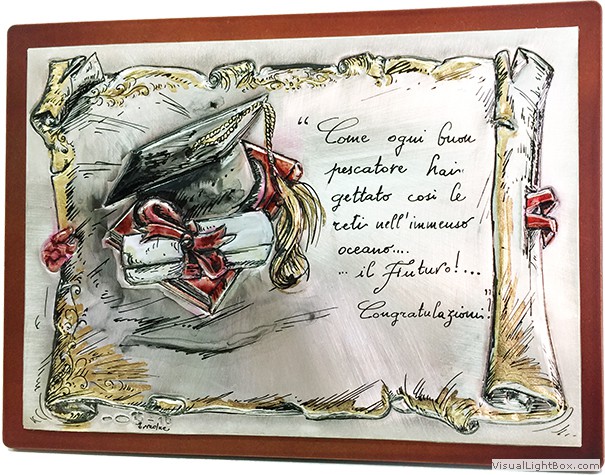 “ Come ogni buon
pescatore hai
gettato così le
reti nell'immenso
oceano....
... il Futuro!...
Congratulazioni! ”
VisualLightBox.com